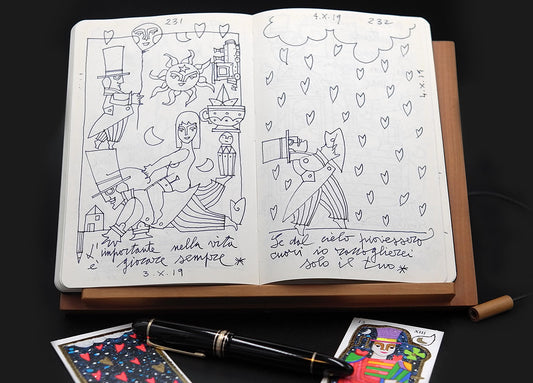 231
L'importante nella vita
è giocare sempre *
3.x.19
4.x.19
232
4.x.19
Se dal cielo piovessero
cuori io raccoglierei
solo il tuo *
XIII